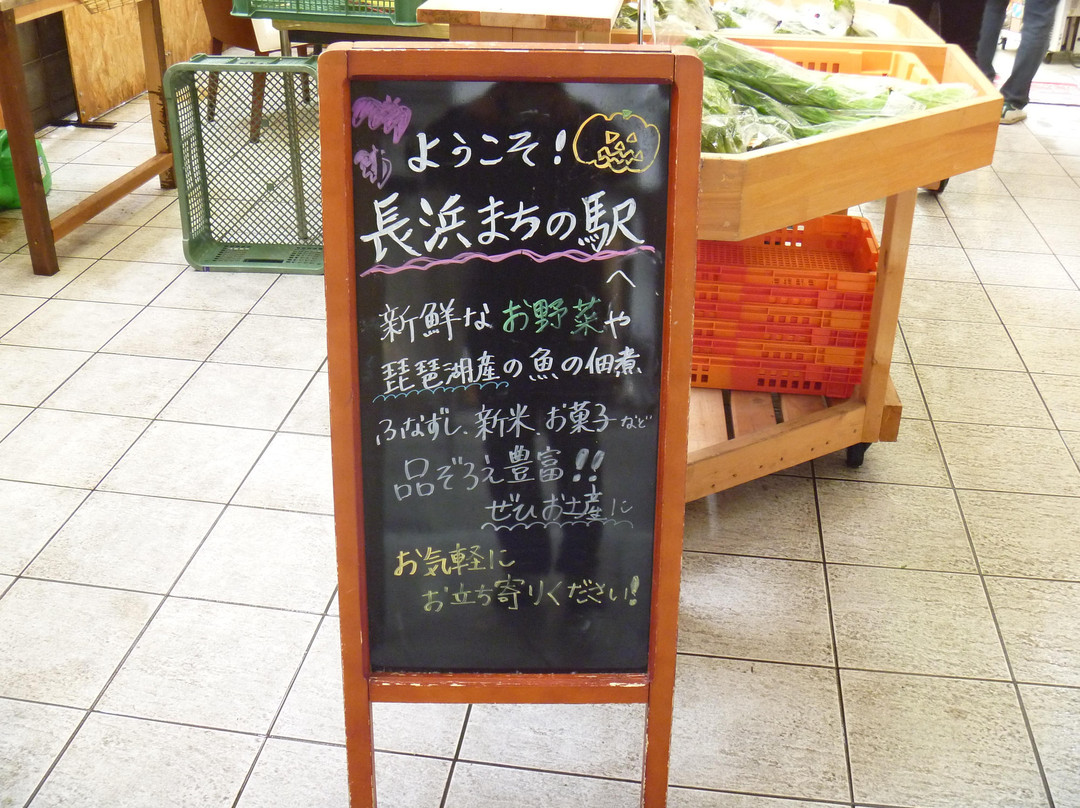 ようこそ!
長浜まちの駅
へ
新鮮なお野菜や
琵琶湖産の魚の佃煮
ふなずし、新米、お菓子など
品ぞろえ豊富!!
ぜひお土産に
お気軽に
お立ち寄りください!